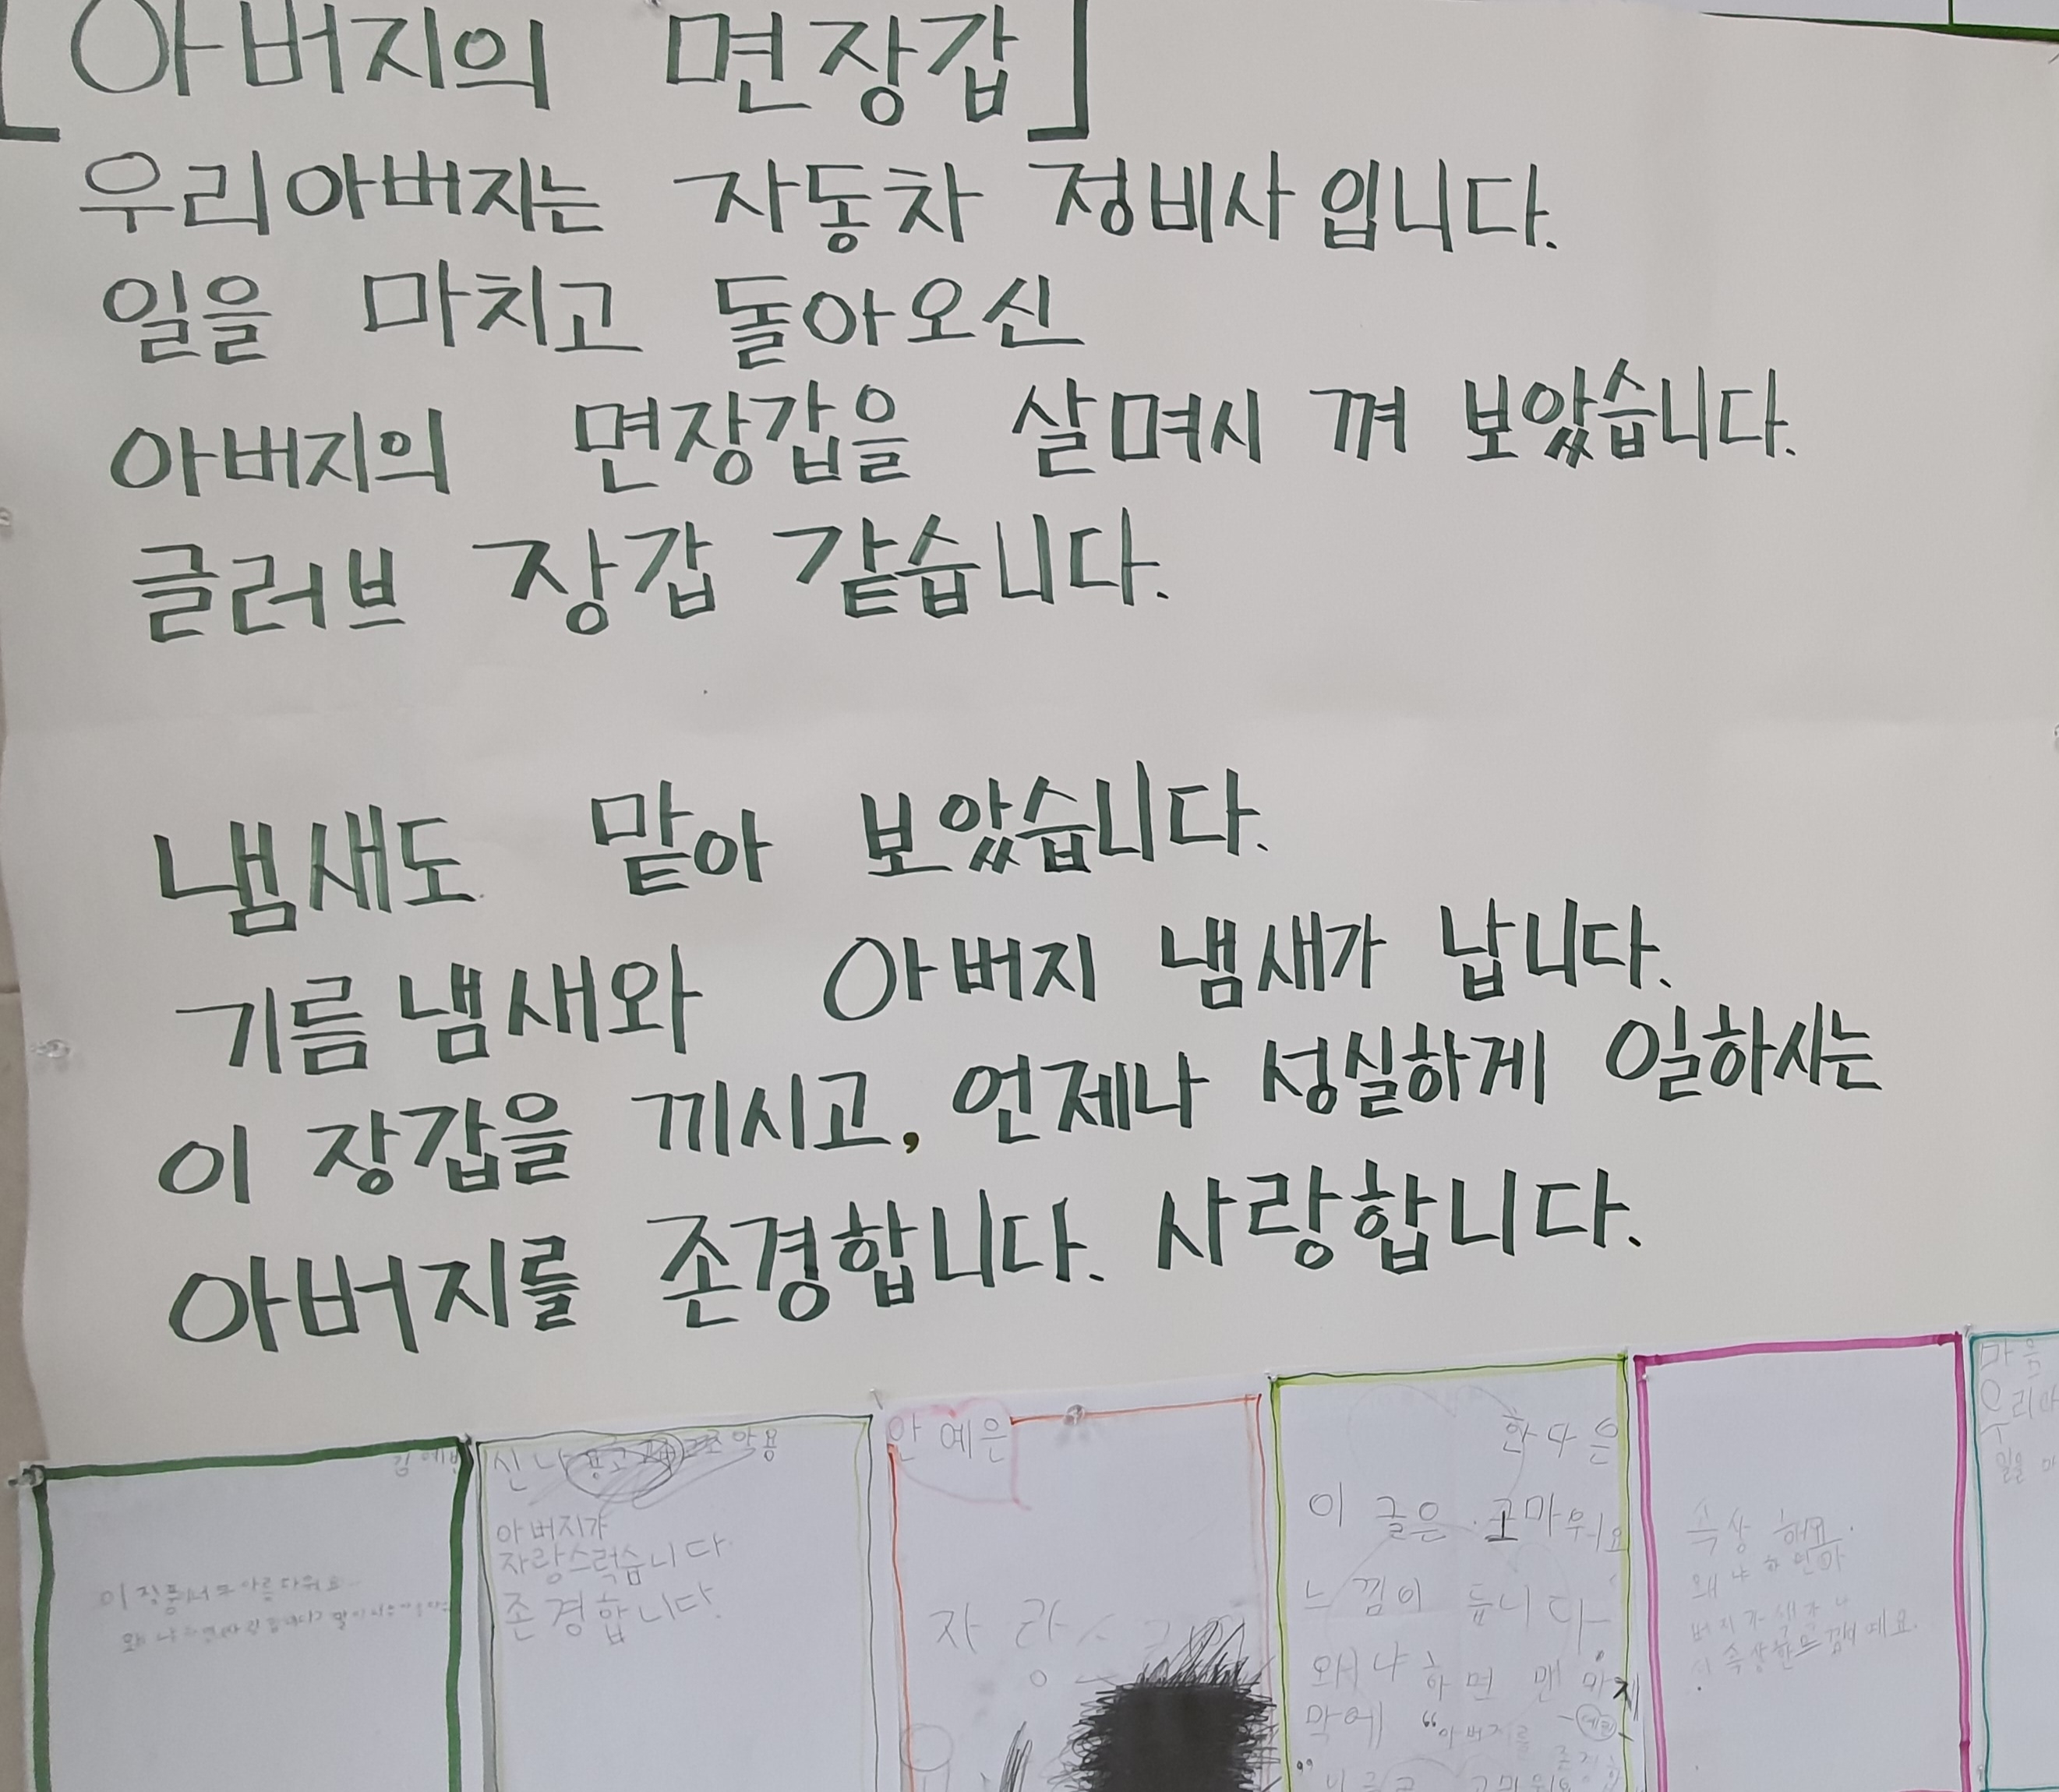 「아버지의 면장갑」
우리아버지는 자동차 정비사입니다.
일을 마치고 돌아오신
아버지의 면장갑을 살며시 껴 보았습니다.
글러브 장갑 같습니다.
냄새도 맡아 보았습니다.
기름냄새와 아버지 냄새가 납니다.
이 장갑을 끼시고, 언제나 성실하게 일하시는
아버지를 존경합니다. 사랑합니다.
김예빈
아버지가
자랑스럭습니다.
존경합니다.
안예은
자랑스
한다은
이 글은 고마워요
느낌이 듭니다.
왜냐하면 맨 마지
막에 "아버지를
속상해요.
왜냐하면아
버지가
마음
우리아
일을 마